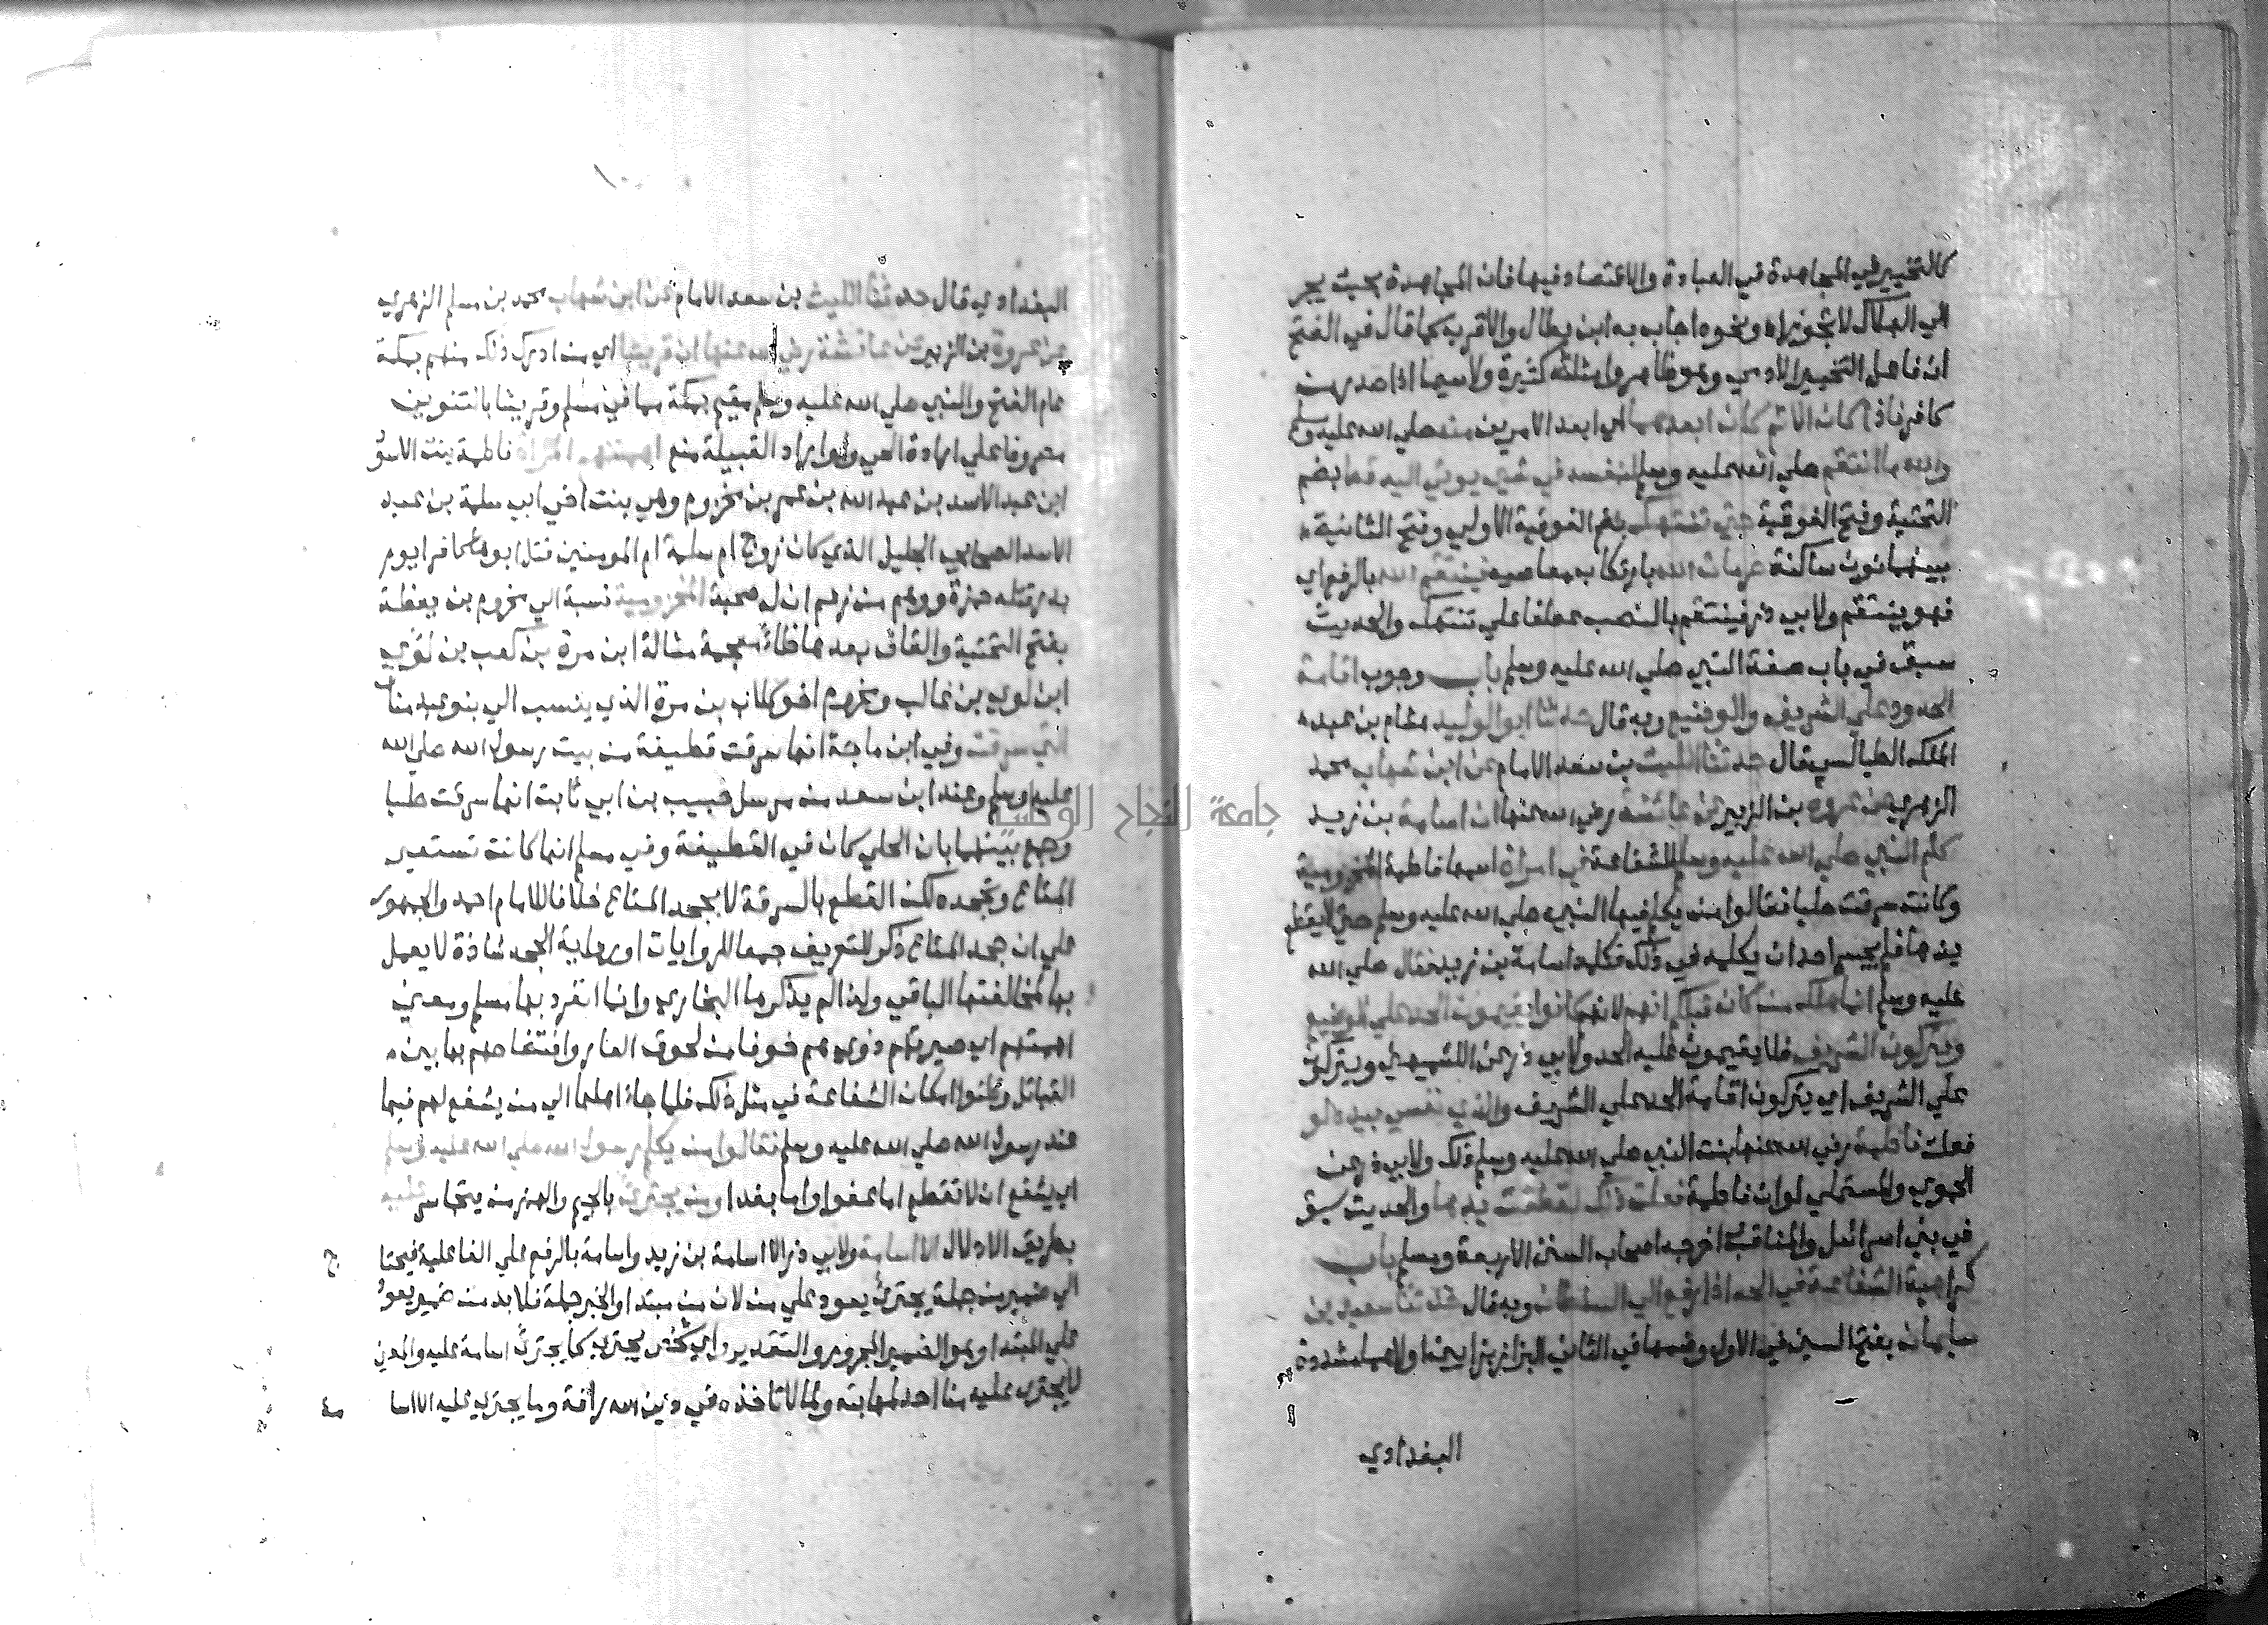 كالتخيير في المجاهدة في العبادة والاقتصاد فيها فان المجاهدة بحيث يجر
الي الهلاك لا تجوز اه ونحوه اجاب به ابن بطال والاقرب كما قال في الفتح
ان فاعل التخيير الادمي وهو ظاهر وامثلته كثيرة ولاسيما اذا صدر من
كافر فاذا كان الاثم كان ابعدهما اي ابعد الامرين منه صلي الله عليه وسلم
والله ما انتقم صلي الله عليه وسلم لنفسه في شي يوتي اليه قط بضم
التحتية وفتح الفوقية حتي تنتهك بضم الفوقية الاولي وفتح الثانية
بينهما نون ساكنة حرمات الله بارتكاب معاصيه فينتقم الله بالرفع اي
فهو ينتقم ولابي ذر فينتقم بالنصب عطفا علي تنتهك والحديث
سبق في باب صفة النبي صلي الله عليه وسلم باب وجوب اقامة
الحدود علي الشريف والوضيع وبه قال حدثنا ابو الوليد هشام بن عبد
الملك الطيالسي قال حدثنا الليث بن سعد الامام عن ابن شهاب محمد
الزهري عن عروه بن الزبير عن عائشة رضي الله عنها ان اسامة بن زيد
كلم النبي صلي الله عليه وسلم للشفاعة في امراة اسمها فاطمة المخزومية
وكانت سرقت حليا فقالوا من يكلم فيها النبي صلي الله عليه وسلم حتي لا يقطع
يدها فلم يجسر احد ان يكلمه في ذلك فكلمه اسامة بن زيد فقال صلي الله
عليه وسلم انما هلك من كان قبلكم انهم لانهم كانوا يقيمون الحد علي الوضيع
ويتركون الشريف فلا يقيمون عليه الحد ولابي ذر عن الكشميهني ويتركون
علي الشريف اي يتركون اقامة الحد علي الشريف والذي نفسي بيده لو
فعلت فاطمة رضي الله عنها بنت النبي صلي الله عليه وسلم ذلك ولابي ذر عن
الحموي والمستملي لو ان فاطمة فعلت ذلك لقطعت يدها والحديث سبق
في بني اسرائيل والمناقب اخرجه اصحاب السنن الاربعة ومسلم باب
كراهية الشفاعة في الحد اذا رفع الي السلطان وبه قال حدثنا سعيد بن
سليمان بفتح السين في الاول وضمها في الثاني البزاز بزايين اولاهما مشددة
البغدادي
البغدادي قال حدثنا الليث بن سعد الامام عن ابن شهاب محمد بن مسلم الزهري
عن عروة بن الزبير عن عائشة رضي الله عنها ان قريشا اي من ادرك ذلك منهم بمكة
عام الفتح والنبي صلي الله عليه وسلم مقيم بمكة مما في مسلم وقريشا بالتنوين
مصروفا علي ارادة الحي ولو اراد القبيلة منع اهمتهم المراة فاطمة بنت الاسود
ابن عبد الاسد بن عبد الله بن عمر بن مخزوم وهي بنت اخي ابي سلمة بن عبد
الاسد الصحابي الجليل الذي كان زوج ام سلمة ام المومنين قتل ابوها كافرا يوم
بدر قتله حمزة ووهم من زعم ان له صحبة المخزومية نسبة الي مخزوم بن يقظة
بفتح التحتية والقاف بعدها ظاء معجمة مشالة ابن مرة بن كعب بن لؤي
ابن لوي بن غالب ومخزوم اخو كلاب بن مرة الذي ينسب الي بنو عبد مناف
التي سرقت وفي ابن ماجة انها سرقت قطيفة من بيت رسول الله صلي الله
عليه وسلم وعند ابن سعد من مرسل حبيب بن ابي ثابت انها سرقت حليا
وجمع بينهما بان الحلي كان في القطيفة وفي مسلم انها كانت تستعير
المتاع وتجحده لكن القطع بالسرقة لا بجحد المتاع خلافا للامام احمد والجمهور
علي ان جحد المتاع ذكر للتعريف جمعا للروايات او رواية الجحد شاذة لا يعمل
بها لمخالفتها الباقي ولذا لم يذكرها البخاري وانما انفرد بها مسلم ومعني
اهمتهم اي صيرتهم ذوي هم خوفا من لحوق العار وافتضاحهم بها بين
القبائل وظنوا امكان الشفاعة في مثل ذلك فلما جاء اهلها الي من يشفع لهم فيها
عند رسول الله صلي الله عليه وسلم فقالوا من يكلم رسول الله صلي الله عليه وسلم
اي يشفع ان لا تقطع اما عفوا واما بفدا ومن يجترئ بالجيم والهمز من يتجاسر عليه
بطريق الادلال الا اسامة ولابي ذر الا اسامة بن زيد واسامة بالرفع علي الفاعلية فيحتا
ج
الي ضمير من جملة يجترئ يعود علي من لان من مبتدا والخبر جملة فلابد من ضمير يعود
علي المبتدا وهو الضمير المجرور والتقدير واي شخص يجترئ كما يجترئ اسامة عليه والمعني
لا يجترئ عليه منا احد لمهابته ولما لا تاخذه في دين الله رافة وما يجترئ عليه الا اسا
مة
جامعة النجاح الوطنية